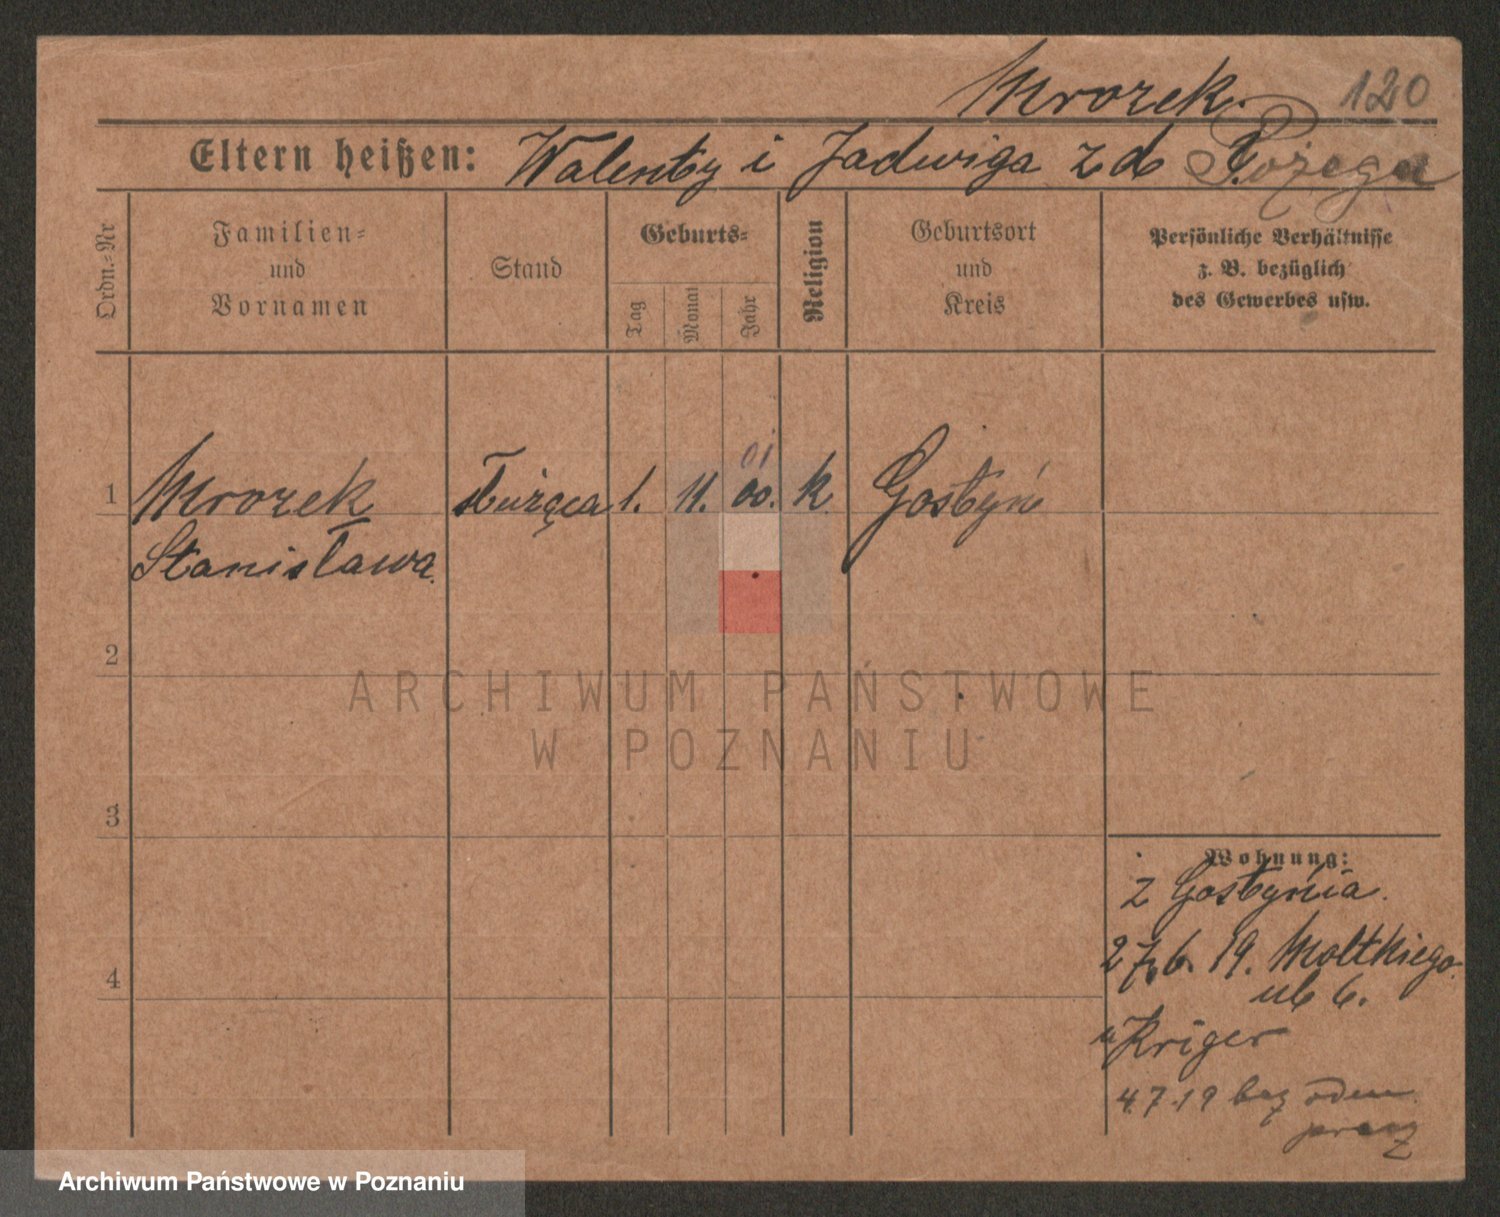 Mrozek. 120
Eltern heißen: Walenty i Jadwiga z d. Pożega
Ordn.=Nr
Familien=
und
Vornamen
Stand
Geburts=
Tag
Monat
Jahr
Religion
Geburtsort
und
Kreis
Persönliche Verhältnisse
z. B. bezüglich
des Gewerbes usw.
01
1 Mrozek służąca 1. 11. 00. k. Gostyń
Stanisława.
2
3
4
Wohnung:
z Gostynia.
27.6.19. Moltkiego
ul 6.
u Kriger
4.7.19 bez odm
pracy
ARCHIWUM PAŃSTWOWE
W POZNANIU
Archiwum Państwowe w Poznaniu